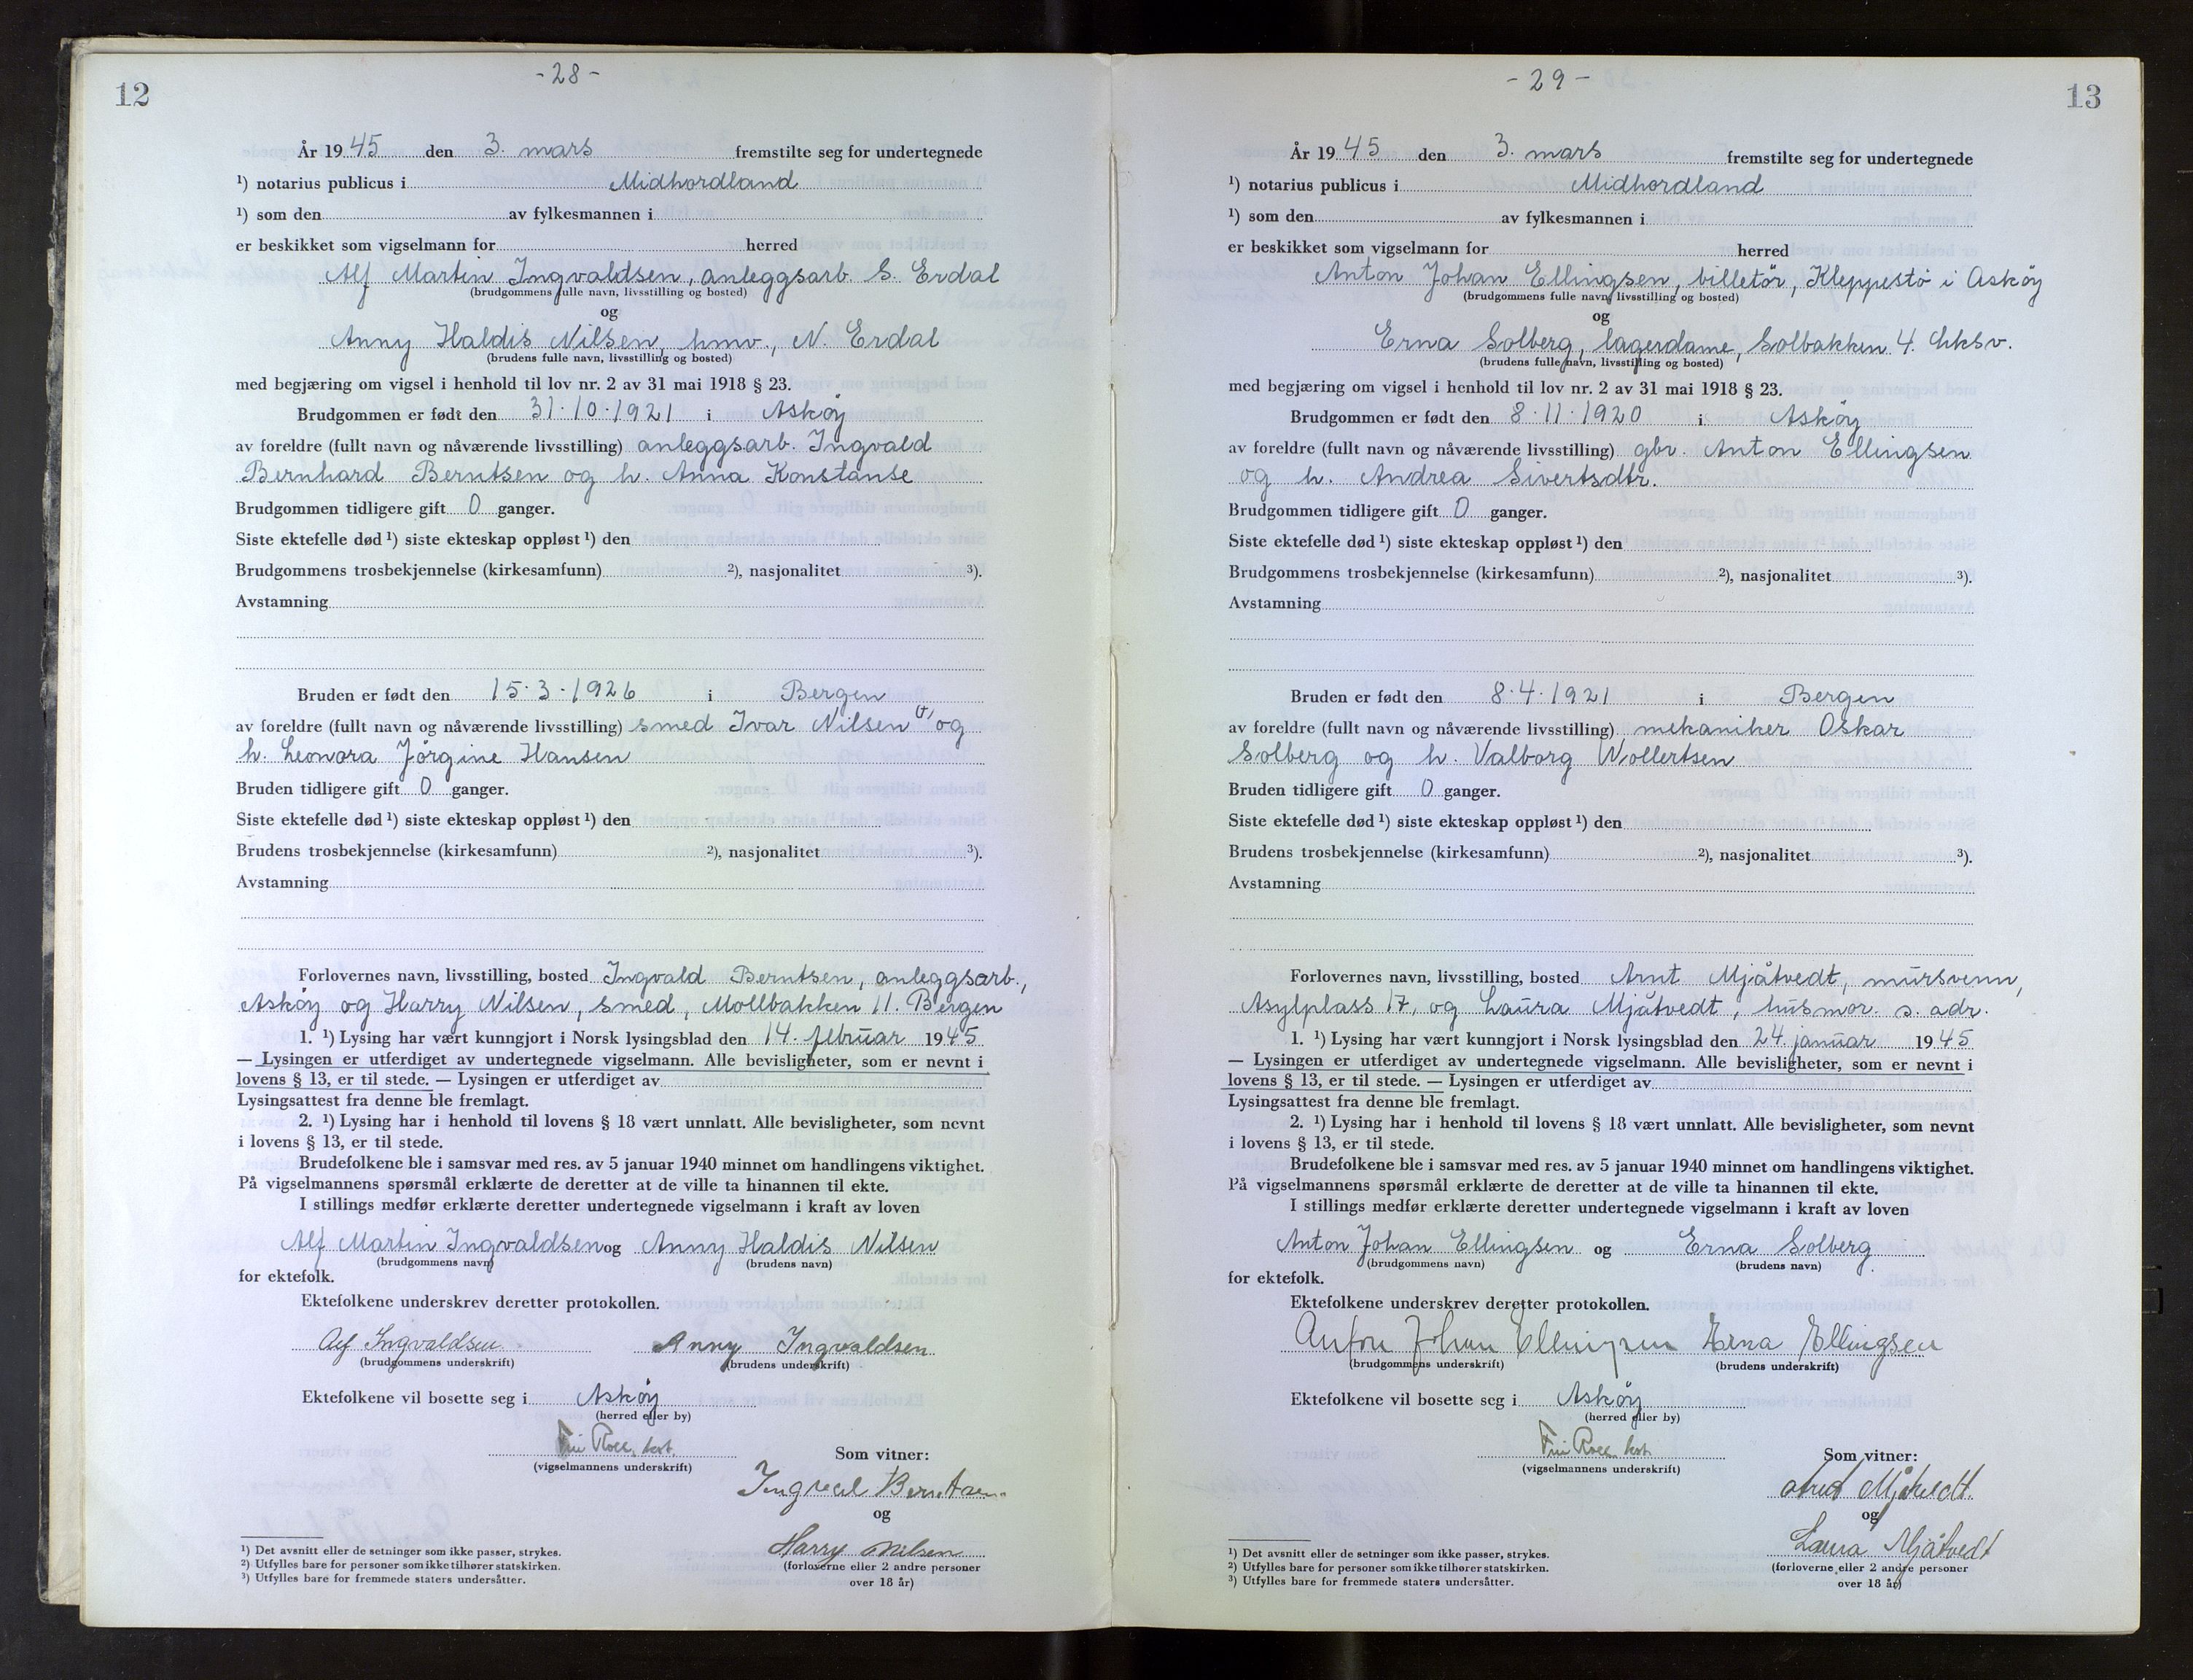 12
-28-
År 1945 den 3. mars fremstilte seg for undertegnede
¹) notarius publicus i Midhordland
¹) som den av fylkesmannen i
er beskikket som vigselmann for herred
Alf Martin Ingvaldsen, anleggsarb. S. Erdal
(brudgommens fulle navn, livsstilling og bosted)
og
Anny Haldis Nilsen, hmv., N. Erdal
(brudens fulle navn, livsstilling og bosted)
med begjæring om vigsel i henhold til lov nr. 2 av 31 mai 1918 § 23.
Brudgommen er født den 31.10.1921 i Askøy
av foreldre (fullt navn og nåværende livsstilling) anleggsarb. Ingvald
Bernhard Berntsen og h. Anna Konstanse
Brudgommen tidligere gift 0 ganger.
Siste ektefelle død ¹) siste ekteskap oppløst ¹) den
Brudgommens trosbekjennelse (kirkesamfunn) ²), nasjonalitet ³).
Avstamning
Bruden er født den 15.3.1926 i Bergen
av foreldre (fullt navn og nåværende livsstilling) smed Ivar Nilsen og
h. Leonora Jørgine Hansen
Bruden tidligere gift 0 ganger.
Siste ektefelle død ¹) siste ekteskap oppløst ¹) den
Brudens trosbekjennelse (kirkesamfunn) ²), nasjonalitet ³).
Avstamning
Forlovernes navn, livsstilling, bosted Ingvald Berntsen, anleggsarb.,
Askøy og Harry Nilsen, smed, Møllbakken 11. Bergen
1. ¹) Lysing har vært kunngjort i Norsk lysingsblad den 14. februar 1945
— Lysingen er utferdiget av undertegnede vigselmann. Alle bevisligheter, som er nevnt i
lovens § 13, er til stede. — Lysingen er utferdiget av
Lysingsattest fra denne ble fremlagt.
2. ¹) Lysing har i henhold til lovens § 18 vært unnlatt. Alle bevisligheter, som nevnt
i lovens § 13, er til stede.
Brudefolkene ble i samsvar med res. av 5 januar 1940 minnet om handlingens viktighet.
På vigselmannens spørsmål erklærte de deretter at de ville ta hinannen til ekte.
I stillings medfør erklærte deretter undertegnede vigselmann i kraft av loven
Alf Martin Ingvaldsen og Anny Haldis Nilsen
(brudgommens navn) (brudens navn)
for ektefolk.
Ektefolkene underskrev deretter protokollen.
Alf Ingvaldsen Anny Ingvaldsen
(brudgommens underskrift) (brudens underskrift)
Ektefolkene vil bosette seg i Askøy
(herred eller by)
(vigselmannens underskrift)
Som vitner:
Ingvald Berntsen
og
Harry Nilsen
(forloverne eller 2 andre personer
over 18 år)
¹) Det avsnitt eller de setninger som ikke passer, strykes.
²) Utfylles bare for personer som ikke tilhører statskirken.
³) Utfylles bare for fremmede staters undersåtter.
13
-29-
År 1945 den 3. mars fremstilte seg for undertegnede
¹) notarius publicus i Midhordland
¹) som den av fylkesmannen i
er beskikket som vigselmann for herred
Anton Johan Ellingsen, billetør, Kleppestø i Askøy
(brudgommens fulle navn, livsstilling og bosted)
og
Erna Solberg, lagerdame, Solbakken 4. Lhksv.
(brudens fulle navn, livsstilling og bosted)
med begjæring om vigsel i henhold til lov nr. 2 av 31 mai 1918 § 23.
Brudgommen er født den 8.11.1920 i Askøy
av foreldre (fullt navn og nåværende livsstilling) gbr. Anton Ellingsen
og h. Andrea Sivertsdtr.
Brudgommen tidligere gift 0 ganger.
Siste ektefelle død ¹) siste ekteskap oppløst ¹) den
Brudgommens trosbekjennelse (kirkesamfunn) ²), nasjonalitet ³).
Avstamning
Bruden er født den 8.4.1921 i Bergen
av foreldre (fullt navn og nåværende livsstilling) mekaniker Oskar
Solberg og h. Valborg Wollertsen
Bruden tidligere gift 0 ganger.
Siste ektefelle død ¹) siste ekteskap oppløst ¹) den
Brudens trosbekjennelse (kirkesamfunn) ²), nasjonalitet ³).
Avstamning
Forlovernes navn, livsstilling, bosted Arnt Mjåtvedt, mursvenn,
Asylplass 17, og Laura Mjåtvedt, husmor. s. adr.
1. ¹) Lysing har vært kunngjort i Norsk lysingsblad den 24. januar 1945
— Lysingen er utferdiget av undertegnede vigselmann. Alle bevisligheter, som er nevnt i
lovens § 13, er til stede. — Lysingen er utferdiget av
Lysingsattest fra denne ble fremlagt.
2. ¹) Lysing har i henhold til lovens § 18 vært unnlatt. Alle bevisligheter, som nevnt
i lovens § 13, er til stede.
Brudefolkene ble i samsvar med res. av 5 januar 1940 minnet om handlingens viktighet.
På vigselmannens spørsmål erklærte de deretter at de ville ta hinannen til ekte.
I stillings medfør erklærte deretter undertegnede vigselmann i kraft av loven
Anton Johan Ellingsen og Erna Solberg
(brudgommens navn) (brudens navn)
for ektefolk.
Ektefolkene underskrev deretter protokollen.
Anton Johan Ellingsen Erna Ellingsen
(brudgommens underskrift) (brudens underskrift)
Ektefolkene vil bosette seg i Askøy
(herred eller by)
(vigselmannens underskrift)
Som vitner:
Arnt Mjåtvedt
og
Laura Mjåtvedt
(forloverne eller 2 andre personer
over 18 år)
¹) Det avsnitt eller de setninger som ikke passer, strykes.
²) Utfylles bare for personer som ikke tilhører statskirken.
³) Utfylles bare for fremmede staters undersåtter.